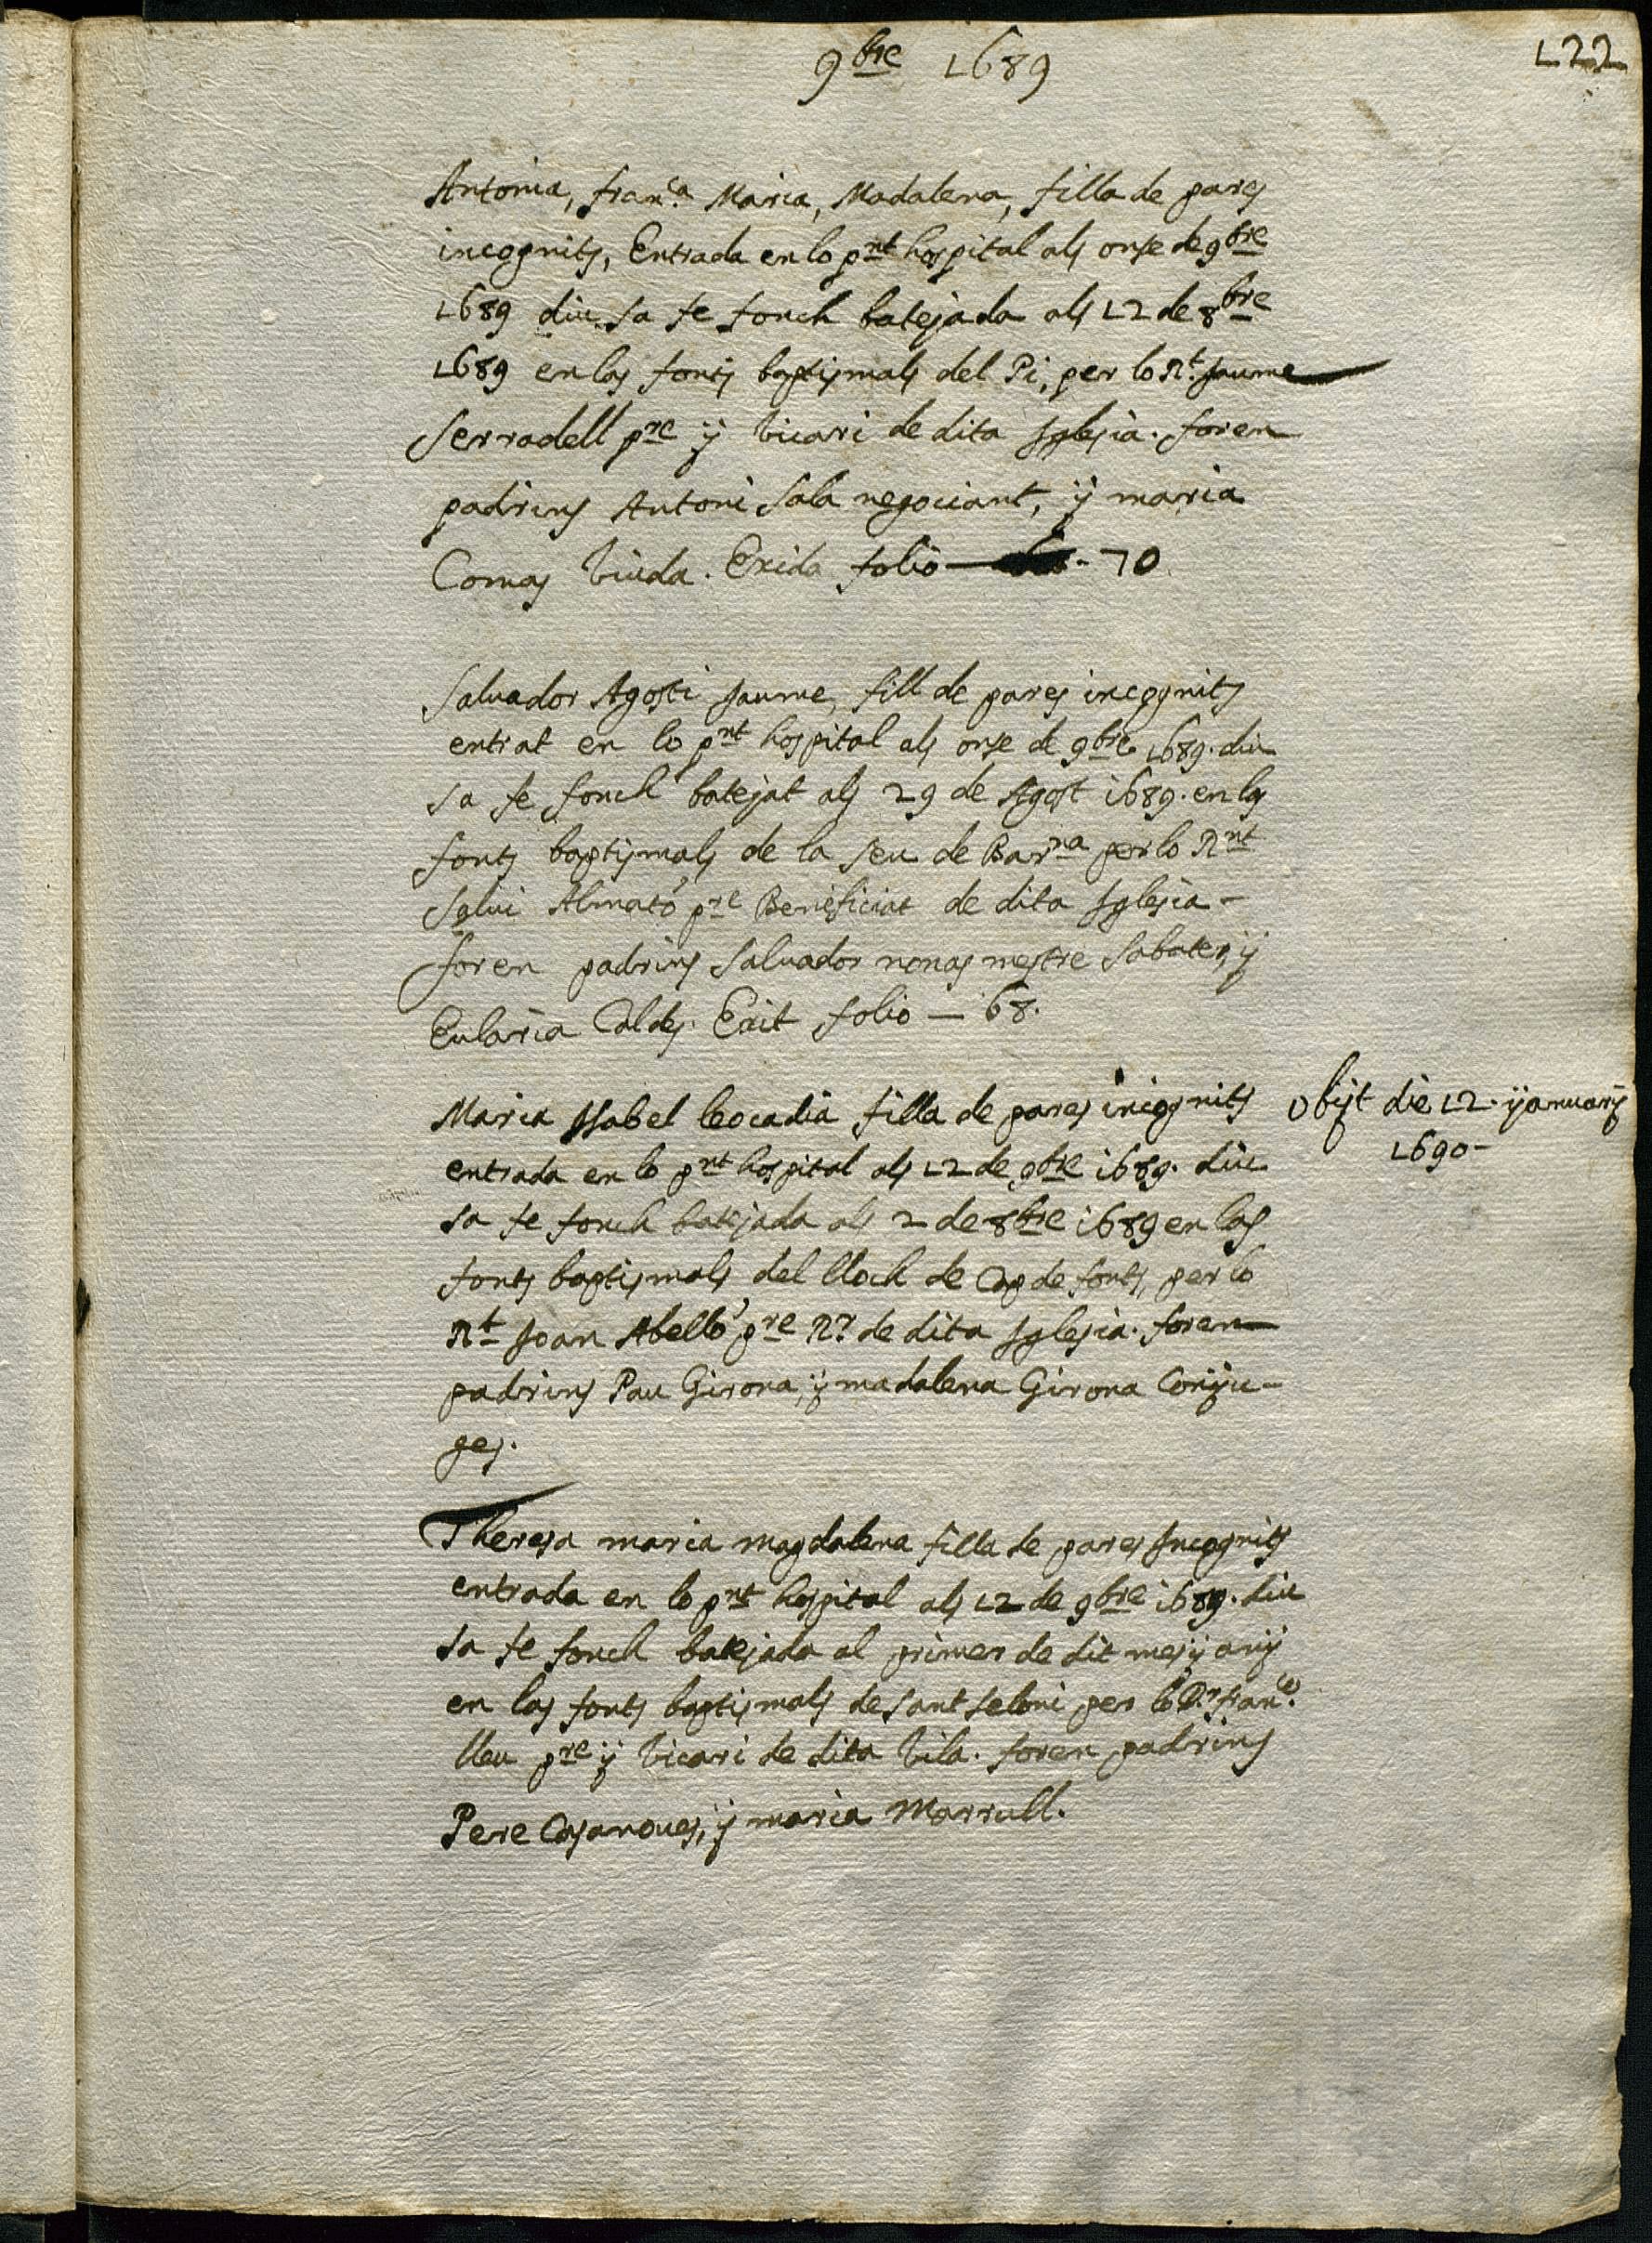 9bre 1689
122
Antonia, Franca Maria, Madalena, filla de pares
incognits, Entrada en lo pnt hospital als onse de 9bre
1689 diu sa fe fonch batejada als 12 de 8bre
1689 en las fonts baptismals del Pi, per lo Rt. Jaume
Serradell pre y vicari de dita Iglesia. foren
padrins Antoni Sala negociant, y maria
Comas viuda. Exida folio — 70
Salvador Agosti Jaume, fill de pares incognits
entrat en lo pnt hospital als onse de 9bre 1689. diu
sa fe fonch batejat als 29 de Agost 1689. en las
fonts baptismals de la Seu de Barna per lo Rnt
Salvi Almató pre Beneficiat de dita Iglesia -
foren padrins Salvador nonas mestre Sabater, y
Eularia Caldes. Exit folio — 68.
Maria Isabel leocadia filla de pares incognits
entrada en lo pnt hospital als 12 de 9bre 1689. diu
sa fe fonch batejada als 2 de 8bre 1689 en las
fonts baptismals del lloch de Cap de fonts, per lo
Rt Joan Abelló pre Rr de dita Iglesia. foren
padrins Pau Girona, y madalena Girona Conju-
ges.
obijt die 12. ijanuarij
1690-
Theresa maria magdalena filla de pares Incognits
entrada en lo pnt hospital als 12 de 9bre 1689. diu
sa fe fonch batejada al primer de dit mes y any
en las fonts baptismals de Sant Seloni per lo Dr. franco.
lleu pre y vicari de dita vila. foren padrins
Pere Casanoves, y maria Marrull.